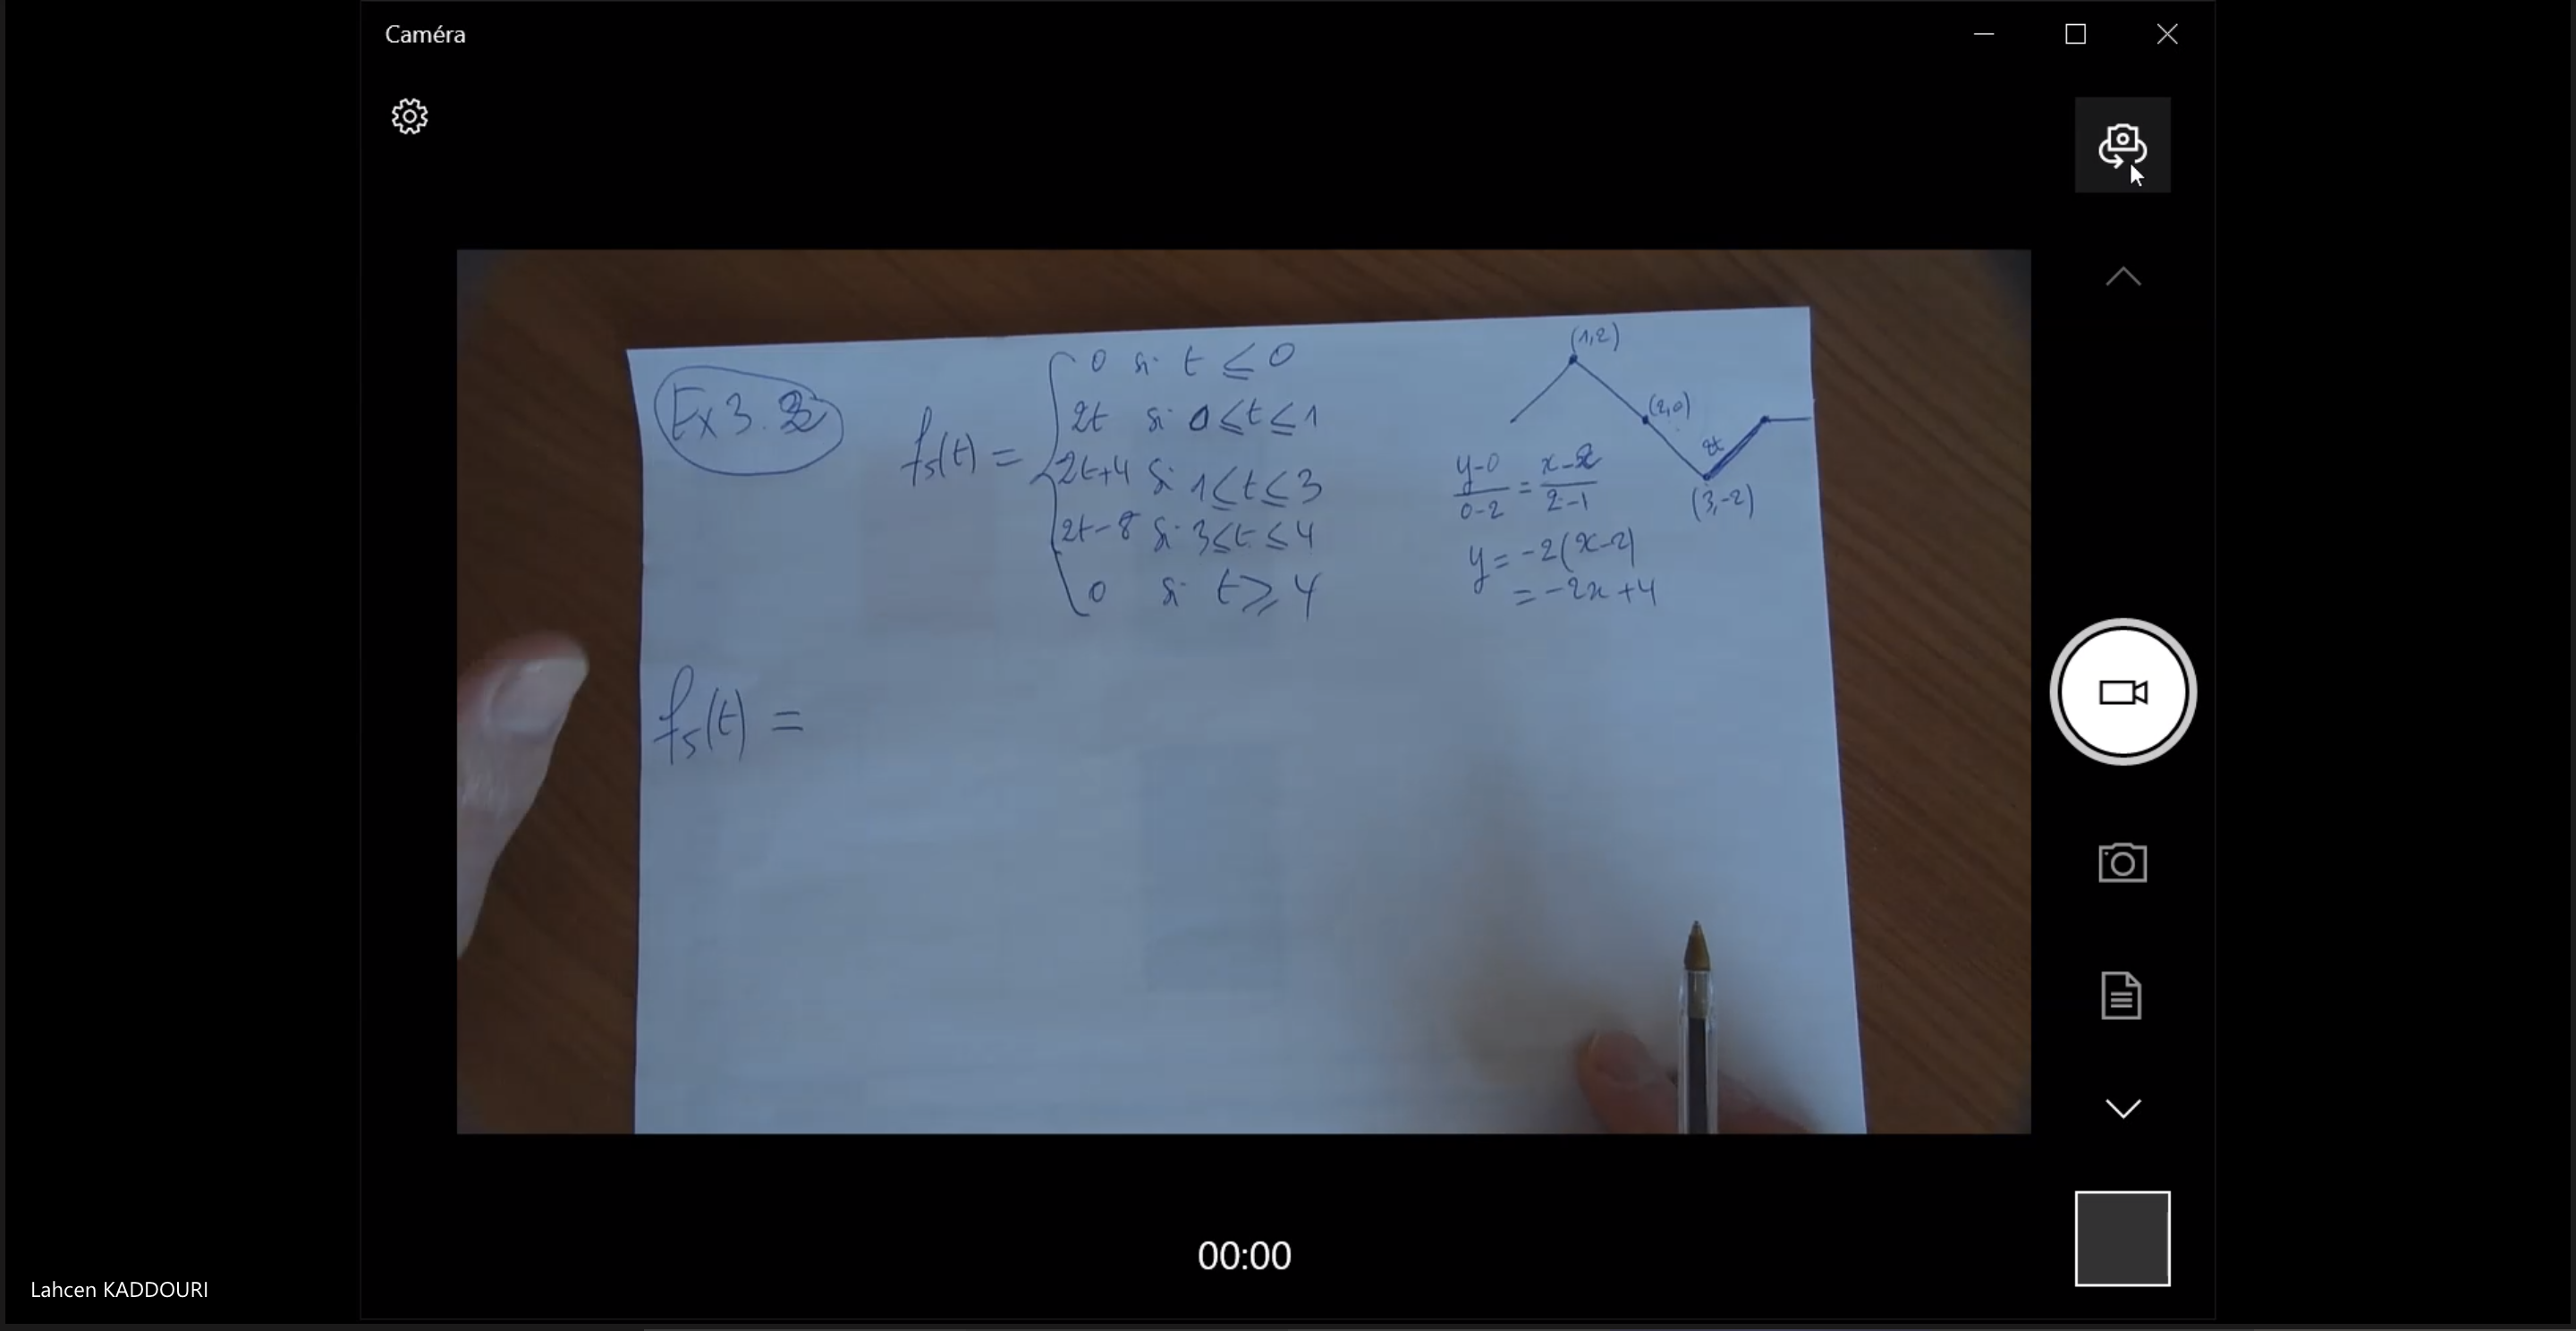 Caméra
Ex 3.3
f₅(t) =
0 si t ≤ 0
2t si 0 ≤ t ≤ 1
-2t+4 si 1 ≤ t ≤ 3
2t-8 si 3 ≤ t ≤ 4
0 si t ⩾ 4
(1,2)
(2,0)
2t
(3,-2)
y-0/0-2 = x-2/2-1
y = -2(x-2)
= -2x+4
f₅(t) =
00:00
Lahcen KADDOURI